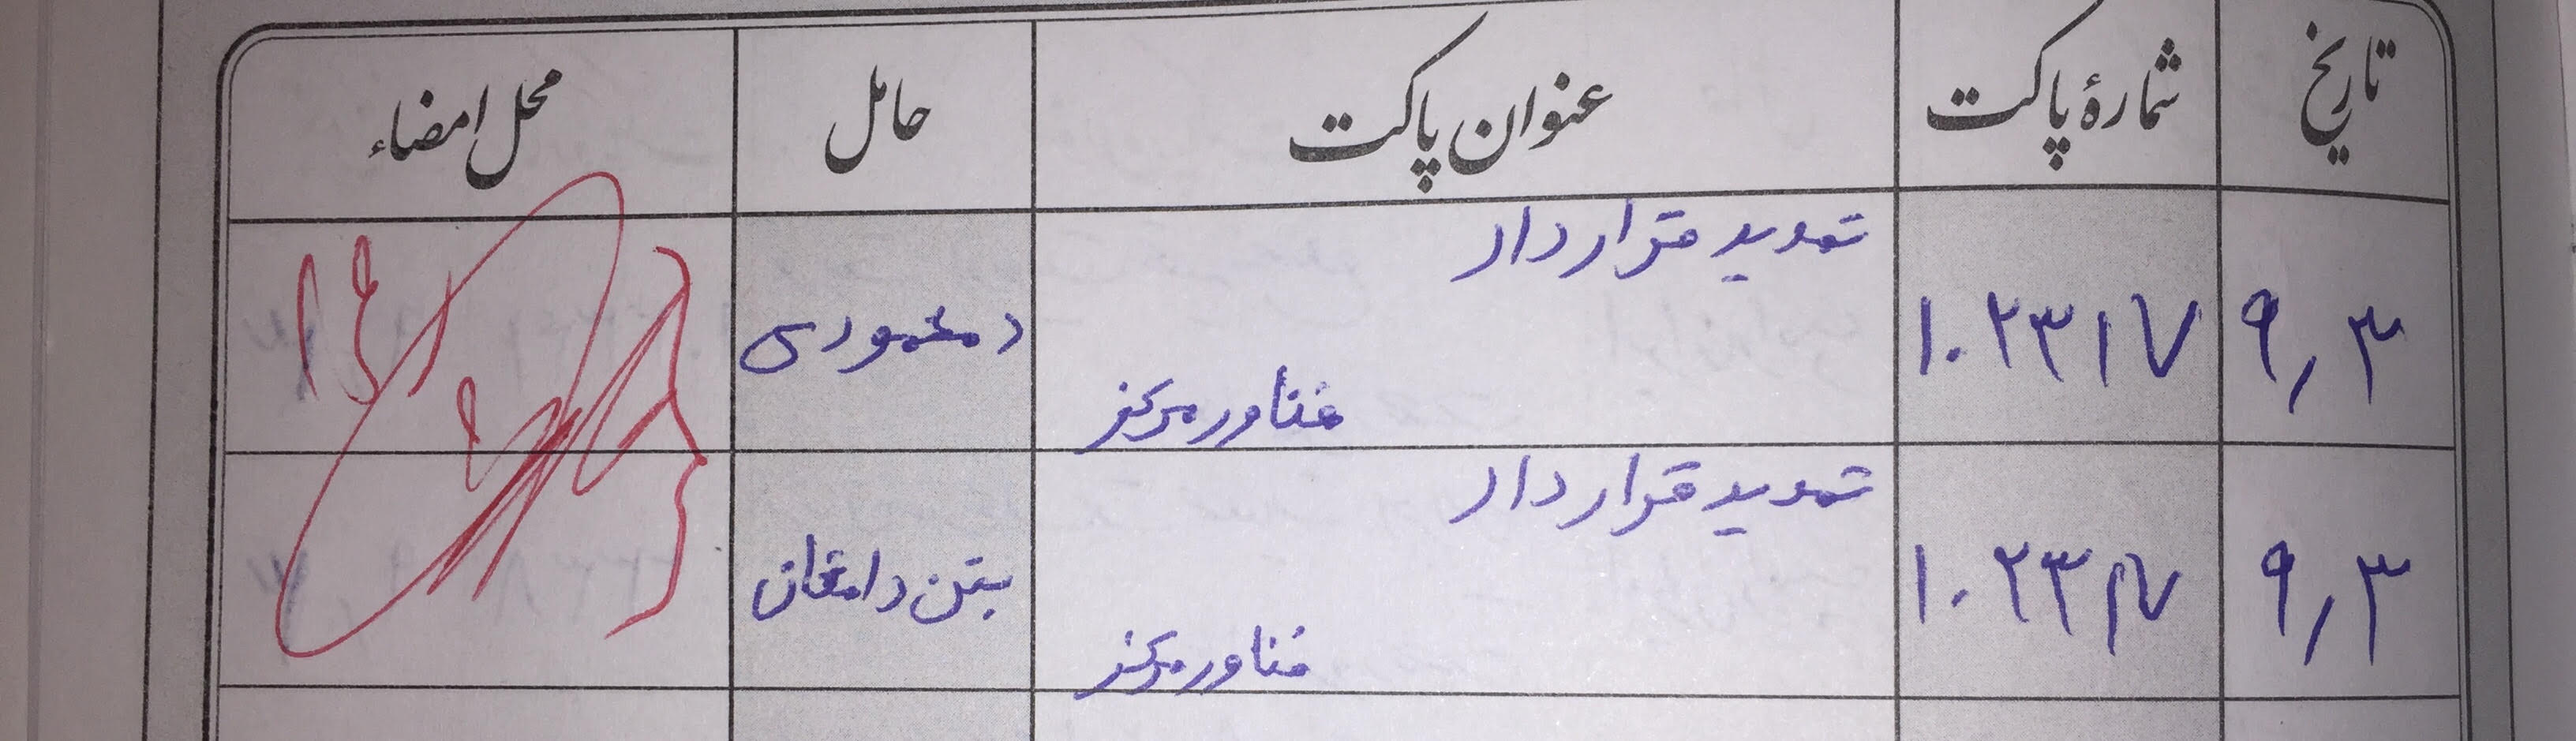 تاریخ شمارهٔ پاکت عنوان پاکت حامل محل امضاء
تمدید قرارداد
۹٫۳ ۱۰۲۳۱۷ دمخموری
فناور مرکز
تمدید قرارداد
۹٫۳ ۱۰۲۳۱۷ بتن دامغان
فناور مرکز